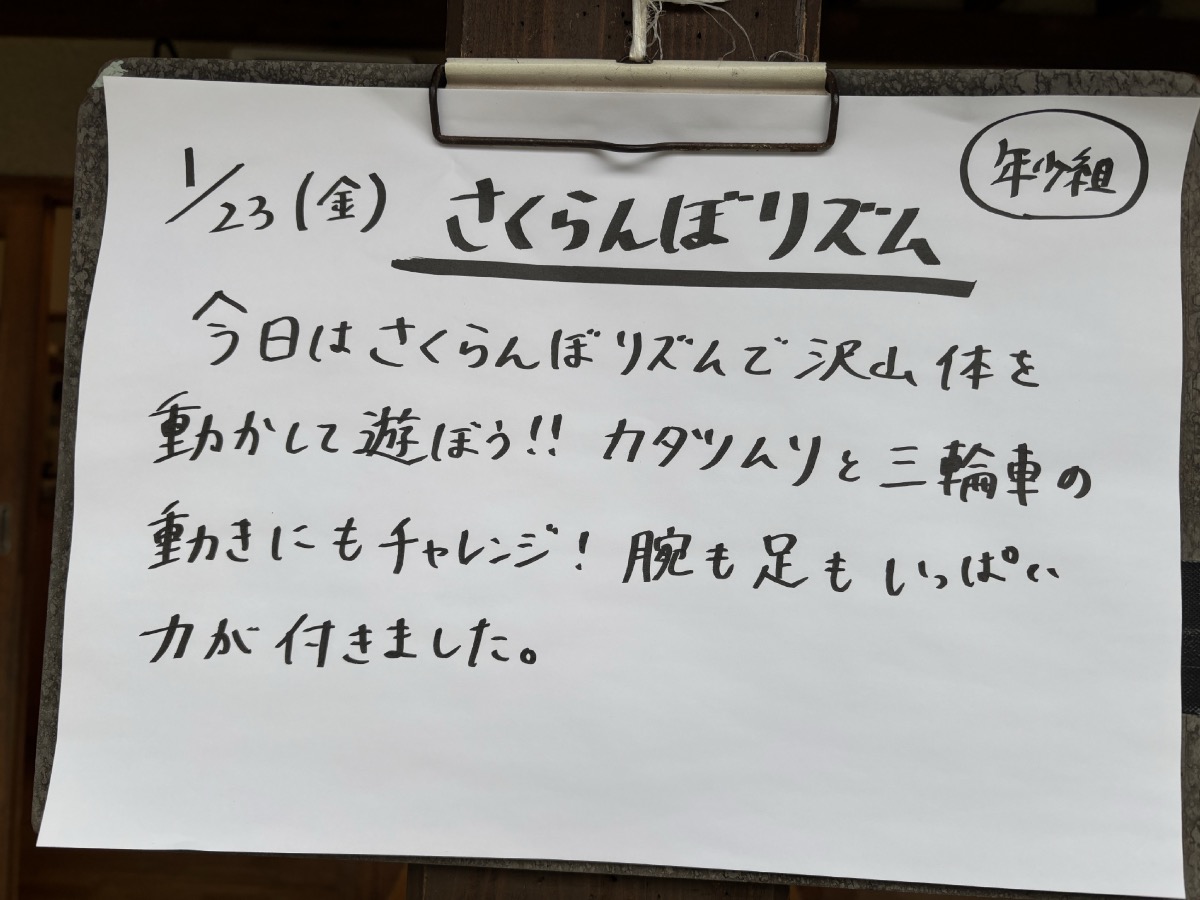 年少組
1/23(金) さくらんぼリズム
今日はさくらんぼリズムで沢山体を
動かして遊ぼう!! カタツムリと三輪車の
動きにもチャレンジ! 腕も足もいっぱい
力が付きました。